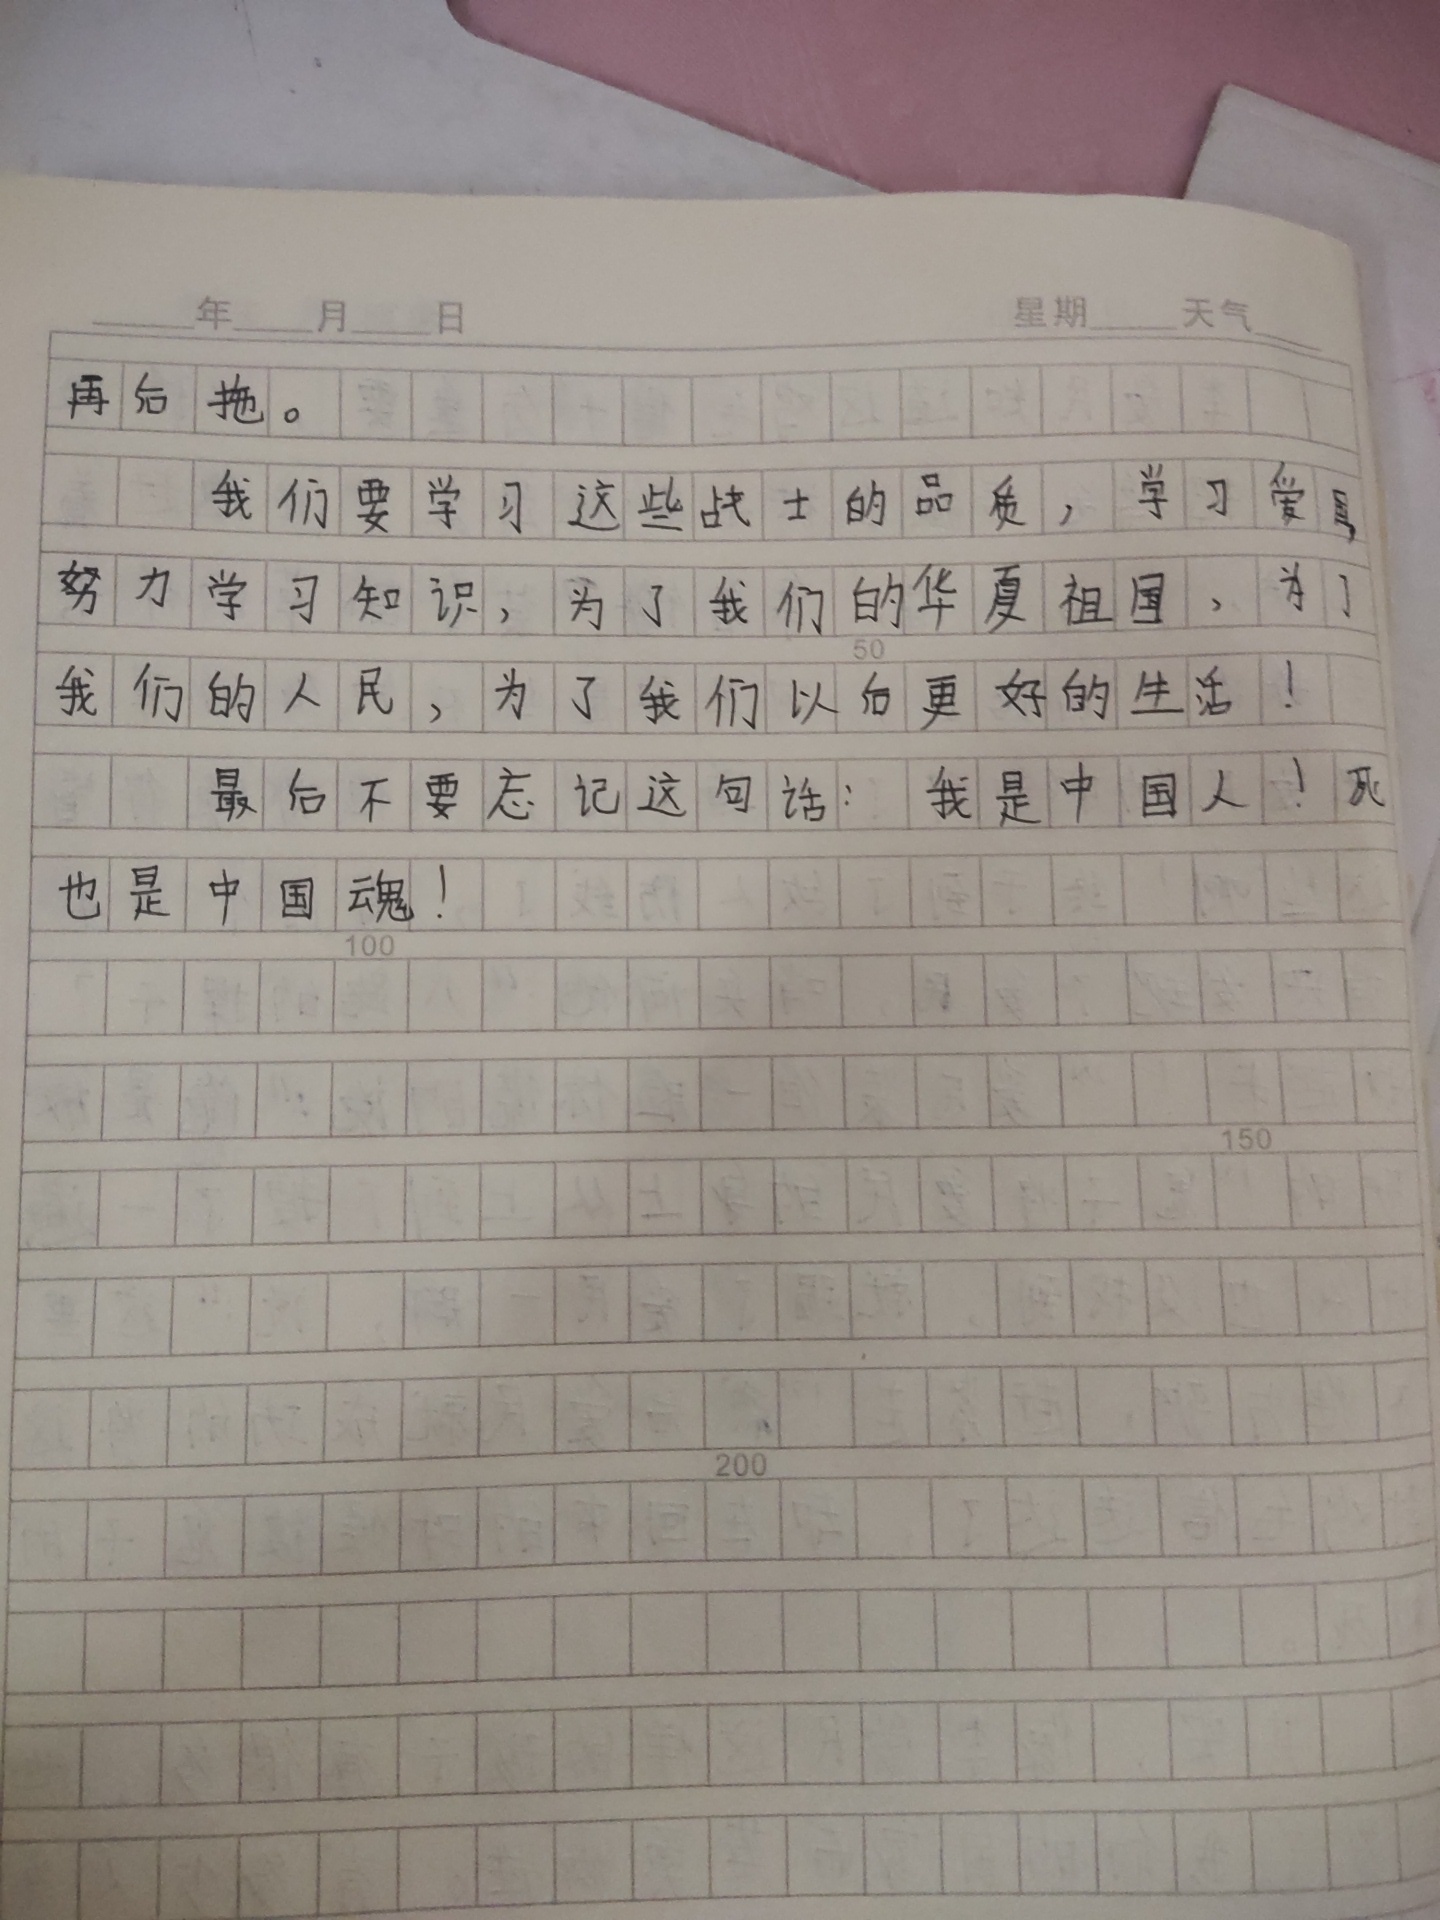 年 月 日 星期 天气
再后拖。
我们要学习这些战士的品质，学习爱国，
努力学习知识，为了我们的华夏祖国，为了
50
我们的人民，为了我们以后更好的生活！
最后不要忘记这句话：我是中国人！死
也是中国魂！
100
150
200